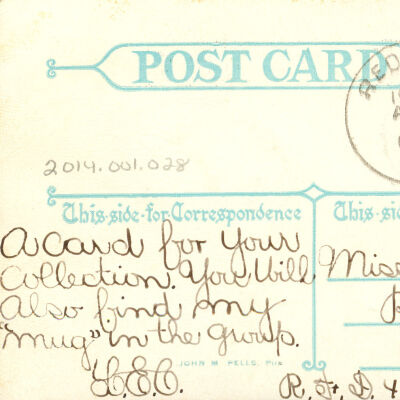 POST CARD
RED
2014.001.028
This side for Correspondence
This sid
A Card for Your
Collection. You Will
Also find my
"mug" in the Group.
Miss
JOHN M. FELLS, PUB.
R. F. D. 4